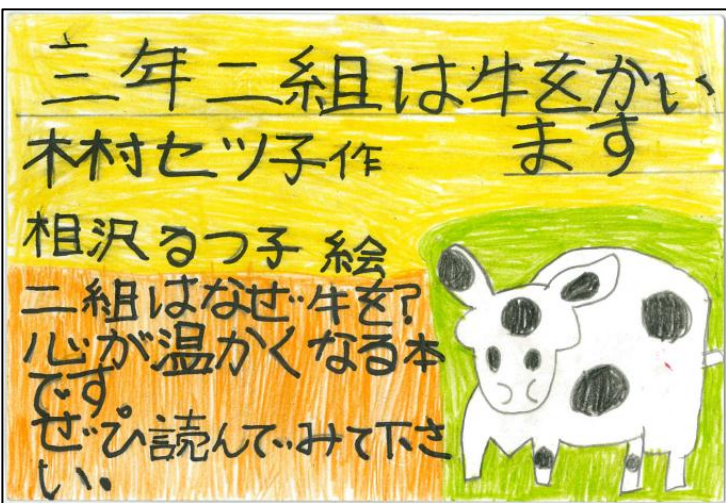 三年二組は牛をかい
ます
木村セツ子作
相沢るつ子 絵
二組はなぜ牛を?
心が温かくなる本
です
ぜひ読んでみて下さ
い。